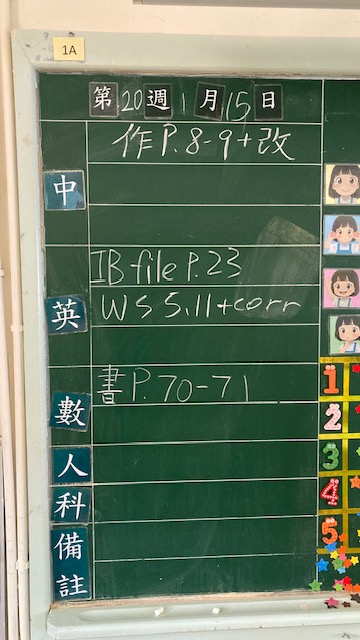 1A
第20週1月15日
作P.8-9+改
中
IB file P.23
英 WS 5.11+corr
數 書P.70-71
人
科
備
註
1
2
3
4
5